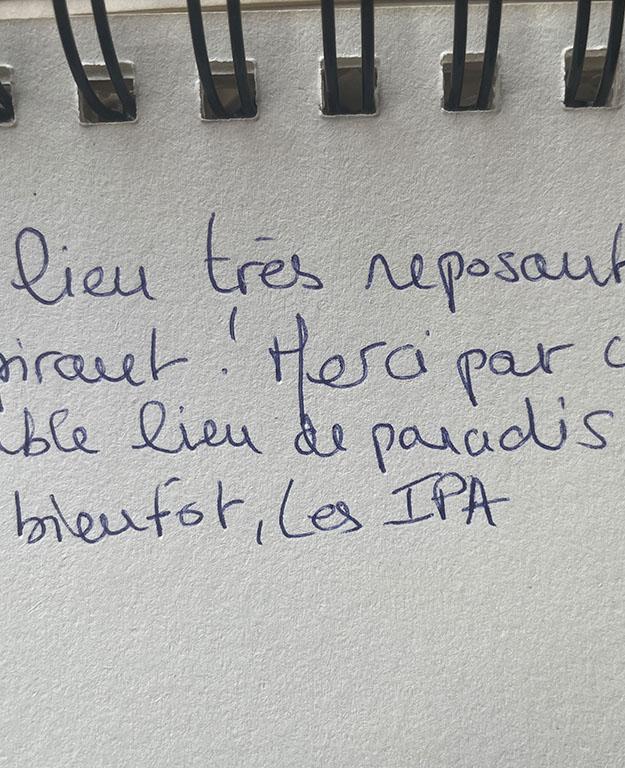 lieu très reposant
pirant ! Merci par c
able lieu de paradis
bientôt, Les IPA